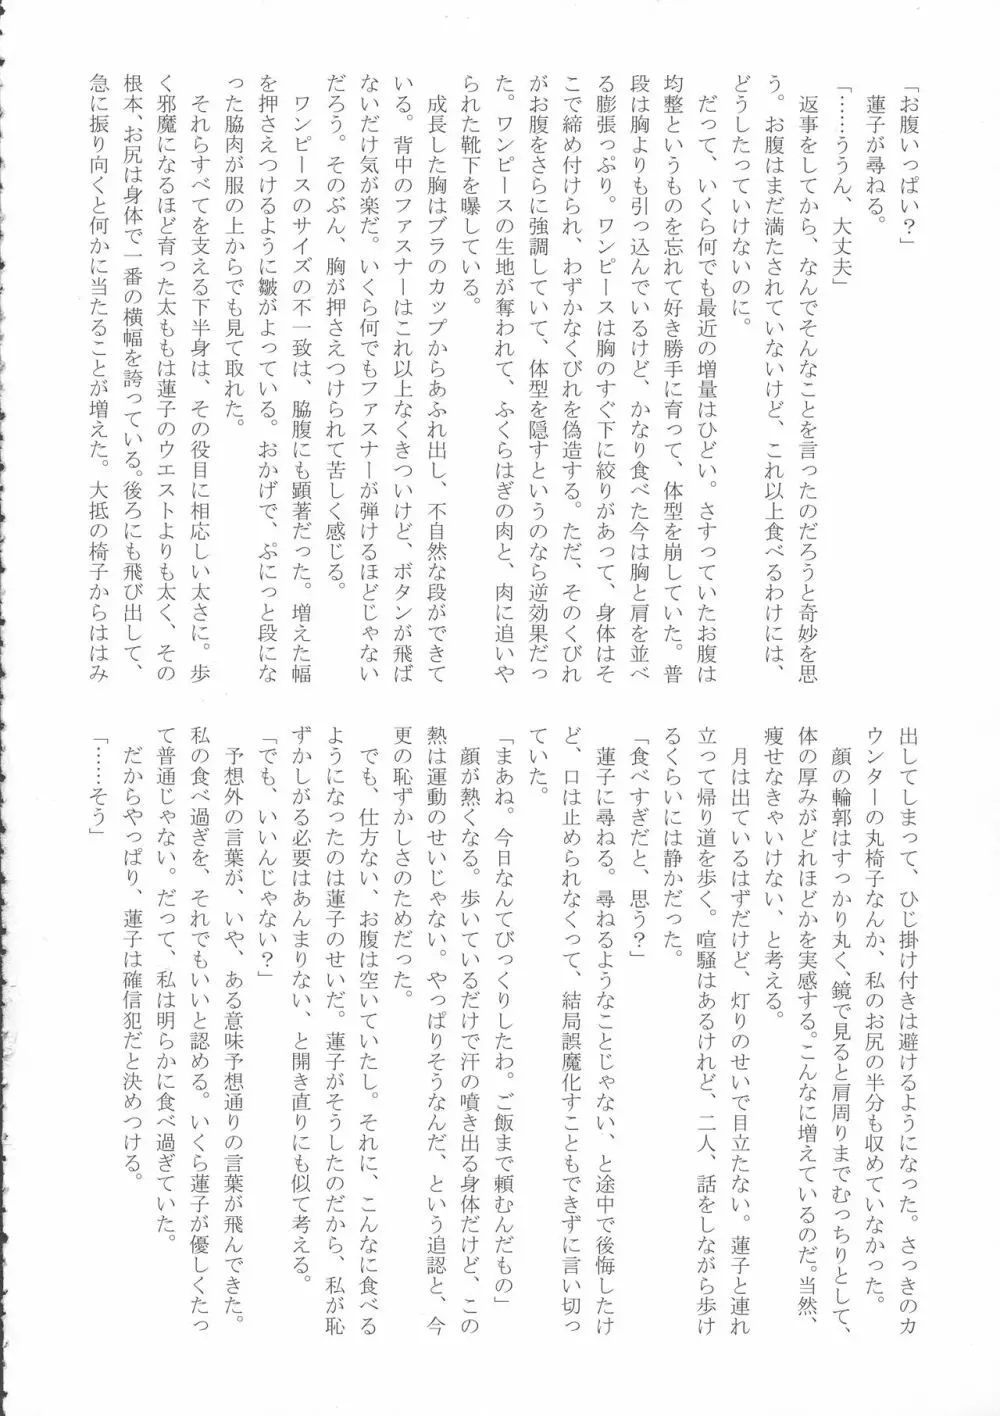 「お腹いっぱい？」
　蓮子が尋ねる。
「……ううん、大丈夫」
　返事をしてから、なんでそんなことを言ったのだろうと奇妙を思
う。お腹はまだ満たされていないけど、これ以上食べるわけには、
どうしたっていけないのに。
　だって、いくら何でも最近の増量はひどい。さすっていたお腹は
均整というものを忘れて好き勝手に育って、体型を崩していた。普
段は胸よりも引っ込んでいるけど、かなり食べた今は胸と肩を並べ
る膨張っぷり。ワンピースは胸のすぐ下に絞りがあって、身体はそ
こで締め付けられ、わずかなくびれを偽造する。ただ、そのくびれ
がお腹をさらに強調していて、体型を隠すというのなら逆効果だっ
た。ワンピースの生地が奪われて、ふくらはぎの肉と、肉に追いや
られた靴下を曝している。
　成長した胸はブラのカップからあふれ出し、不自然な段ができて
いる。背中のファスナーはこれ以上なくきついけど、ボタンが飛ば
ないだけ気が楽だ。いくら何でもファスナーが弾けるほどじゃない
だろう。そのぶん、胸が押さえつけられて苦しく感じる。
　ワンピースのサイズの不一致は、脇腹にも顕著だった。増えた幅
を押さえつけるように皺がよっている。おかげで、ぷにっと段にな
った脇肉が服の上からでも見て取れた。
　それらすべてを支える下半身は、その役目に相応しい太さに。歩
く邪魔になるほど育った太ももは蓮子のウエストよりも太く、その
根本、お尻は身体で一番の横幅を誇っている。後ろにも飛び出して、
急に振り向くと何かに当たることが増えた。大抵の椅子からははみ
出してしまって、ひじ掛け付きは避けるようになった。さっきのカ
ウンターの丸椅子なんか、私のお尻の半分も収めていなかった。
　顔の輪郭はすっかり丸く、鏡で見ると肩周りまでむっちりとして、
体の厚みがどれほどかを実感する。こんなに増えているのだ。当然、
痩せなきゃいけない、と考える。
　月は出ているはずだけど、灯りのせいで目立たない。蓮子と連れ
立って帰り道を歩く。喧騒はあるけれど、二人、話をしながら歩け
るくらいには静かだった。
「食べすぎだと、思う？」
　蓮子に尋ねる。尋ねるようなことじゃない、と途中で後悔したけ
ど、口は止められなくって、結局誤魔化すこともできずに言い切っ
ていた。
「まあね。今日なんてびっくりしたわ。ご飯まで頼むんだもの」
　顔が熱くなる。歩いているだけで汗の噴き出る身体だけど、この
熱は運動のせいじゃない。やっぱりそうなんだ、という追認と、今
更の恥ずかしさのためだった。
　でも、仕方ない、お腹は空いていたし。それに、こんなに食べる
ようになったのは蓮子のせいだ。蓮子がそうしたのだから、私が恥
ずかしがる必要はあんまりない、と開き直りにも似て考える。
「でも、いいんじゃない？」
　予想外の言葉が、いや、ある意味予想通りの言葉が飛んできた。
私の食べ過ぎを、それでもいいと認める。いくら蓮子が優しくたっ
て普通じゃない。だって、私は明らかに食べ過ぎていた。
　だからやっぱり、蓮子は確信犯だと決めつける。
「……そう」